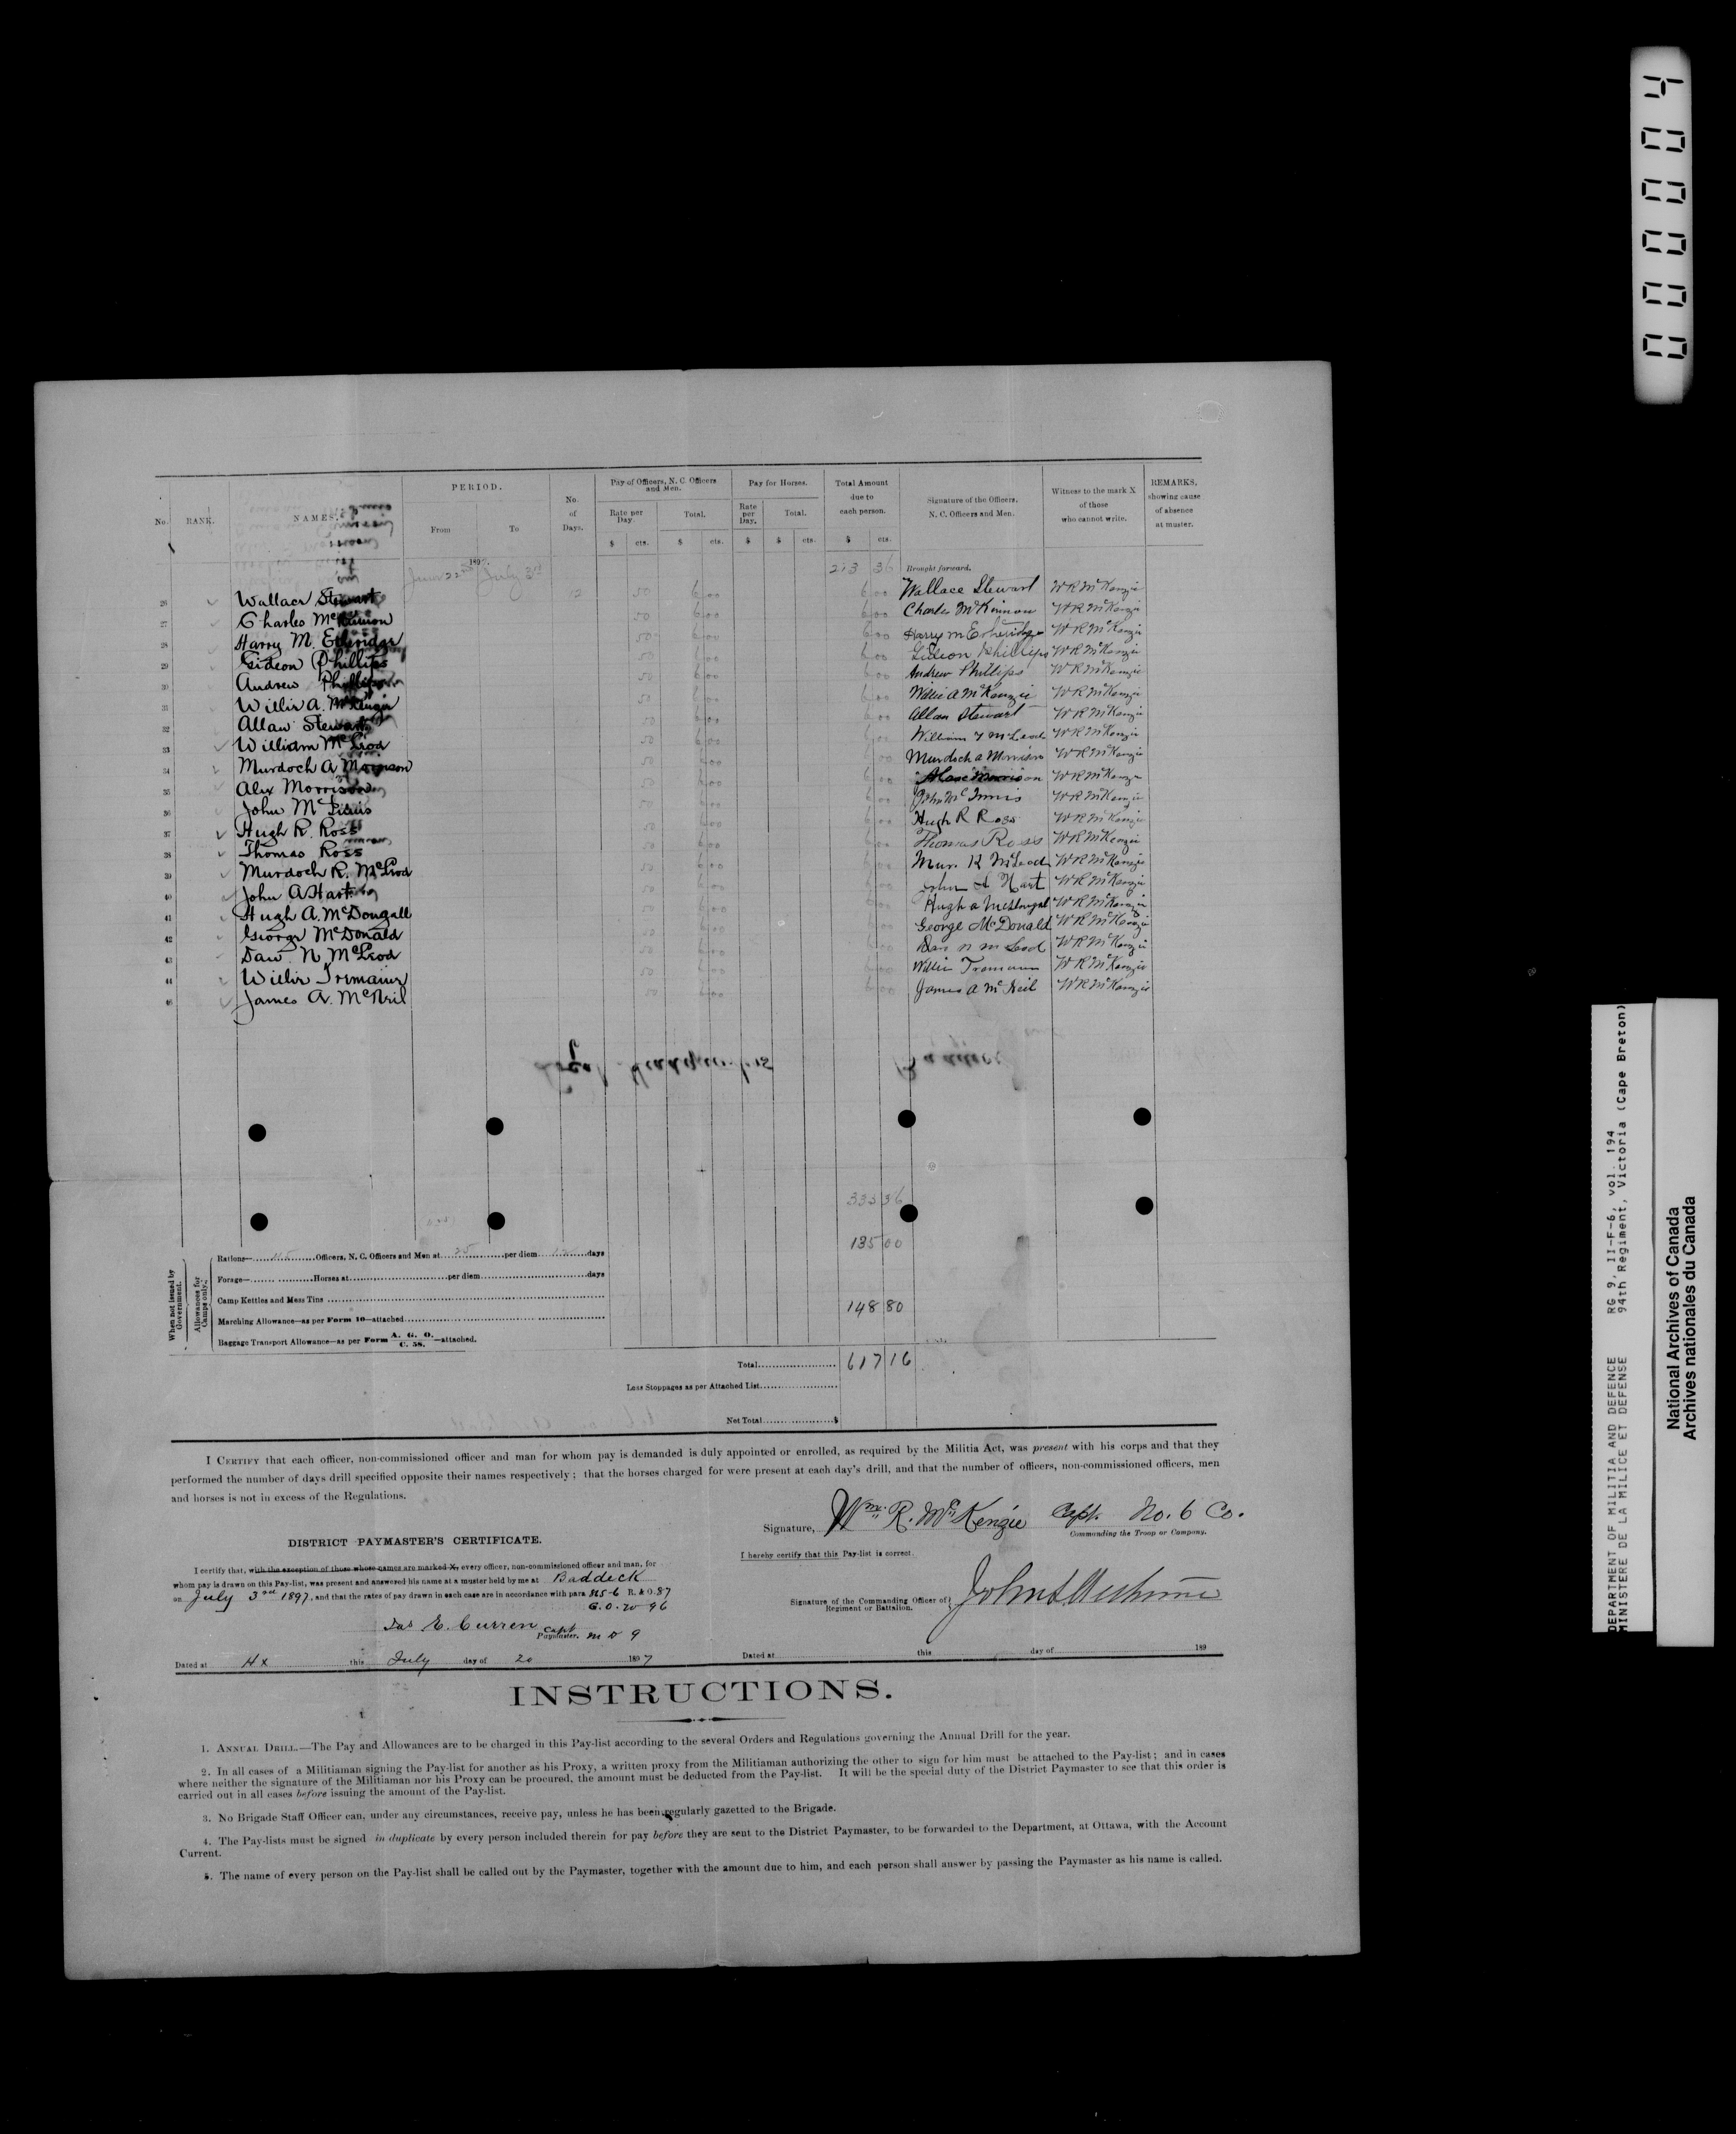 No. RANK. NAMES. PERIOD. From To No. of Days. Pay of Officers, N. C. Officers and Men. Rate per Day. Total. Pay for Horses. Rate per Day. Total. Total Amount due to each person. Signature of the Officers, N. C. Officers and Men. Witness to the mark X of those who cannot write. REMARKS, showing cause of absence at muster.
$ cts. $ cts. $ $ cts. $ cts.
189 June 22nd July 3rd 213 36 Brought forward.
26 Wallace Stewart 12 50 6 00 6 00 Wallace Stewart W R McKenzie
27 Charles McKinnon 50 6 00 6 00 Charles McKinnon W R McKenzie
28 Harry M. Etheridge 50 6 00 6 00 Harry M Etheridge W R McKenzie
29 Gideon Phillips 50 6 00 6 00 Gideon Phillips W R McKenzie
30 Andrew Phillips 50 6 00 6 00 Andrew Phillips W R McKenzie
31 Willie A. McKenzie 50 6 00 6 00 Willie A McKenzie W R McKenzie
32 Allan Stewart 50 6 00 6 00 Allan Stewart W R McKenzie
33 William McLeod 50 6 00 6 00 William McLeod W R McKenzie
34 Murdoch A Morrison 50 6 00 6 00 Murdoch A Morrison W R McKenzie
35 Alex Morrison 50 6 00 6 00 Morrison W R McKenzie
36 John McInnis 50 6 00 6 00 John McInnis W R McKenzie
37 Hugh R. Ross 50 6 00 6 00 Hugh R Ross W R McKenzie
38 Thomas Ross 50 6 00 6 00 Thomas Ross W R McKenzie
39 Murdoch R. McLeod 50 6 00 6 00 Mur. R McLeod W R McKenzie
40 John A Hart 50 6 00 6 00 John A Hart W R McKenzie
41 Hugh A. McDougall 50 6 00 6 00 Hugh A McDougal W R McKenzie
42 George McDonald 50 6 00 6 00 George McDonald W R McKenzie
43 Dan. N McLeod 50 6 00 6 00 Dan N McLeod W R McKenzie
44 Willie Tremaine 50 6 00 6 00 Willie Tremaine W R McKenzie
James A. McNeil 50 6 00 6 00 James A McNeil W R McKenzie
333 36
When not issued by Government.
Allowances for Camps only.
Rations— 45 Officers, N. C. Officers and Men at 25 per diem 12 days 135 00
Forage— Horses at per diem days
Camp Kettles and Mess Tins
Marching Allowance—as per Form 10—attached 148 80
Baggage Transport Allowance—as per Form A. G. O. C. 58. —attached.
Total 617 16
Less Stoppages as per Attached List
Net Total $
I CERTIFY that each officer, non-commissioned officer and man for whom pay is demanded is duly appointed or enrolled, as required by the Militia Act, was present with his corps and that they
performed the number of days drill specified opposite their names respectively; that the horses charged for were present at each day's drill, and that the number of officers, non-commissioned officers, men
and horses is not in excess of the Regulations.
Signature, Wm. R. McKenzie Capt. No. 6 Co.
Commanding the Troop or Company.
DISTRICT PAYMASTER'S CERTIFICATE.
I hereby certify that this Pay-list is correct.
I certify that, with the exception of those whose names are marked X, every officer, non-commissioned officer and man, for
whom pay is drawn on this Pay-list, was present and answered his name at a muster held by me at Baddeck
on July 3rd 1897, and that the rates of pay drawn in each case are in accordance with para 815-6 R. & O. 87
G. O. 20 96
Signature of the Commanding Officer of Regiment or Battalion.
Jas E. Curren Capt
Paymaster. M D 9
Dated at Hx this July day of 20 1897
Dated at this day of 189
INSTRUCTIONS.
1. ANNUAL DRILL.—The Pay and Allowances are to be charged in this Pay-list according to the several Orders and Regulations governing the Annual Drill for the year.
2. In all cases of a Militiaman signing the Pay-list for another as his Proxy, a written proxy from the Militiaman authorizing the other to sign for him must be attached to the Pay-list; and in cases
where neither the signature of the Militiaman nor his Proxy can be procured, the amount must be deducted from the Pay-list. It will be the special duty of the District Paymaster to see that this order is
carried out in all cases before issuing the amount of the Pay-list.
3. No Brigade Staff Officer can, under any circumstances, receive pay, unless he has been regularly gazetted to the Brigade.
4. The Pay-lists must be signed in duplicate by every person included therein for pay before they are sent to the District Paymaster, to be forwarded to the Department, at Ottawa, with the Account
Current.
5. The name of every person on the Pay-list shall be called out by the Paymaster, together with the amount due to him, and each person shall answer by passing the Paymaster as his name is called.
000004
DEPARTMENT OF MILITIA AND DEFENCE RG 9, II-F-6, vol. 194
MINISTERE DE LA MILICE ET DEFENSE 94th Regiment, Victoria (Cape Breton)
National Archives of Canada
Archives nationales du Canada